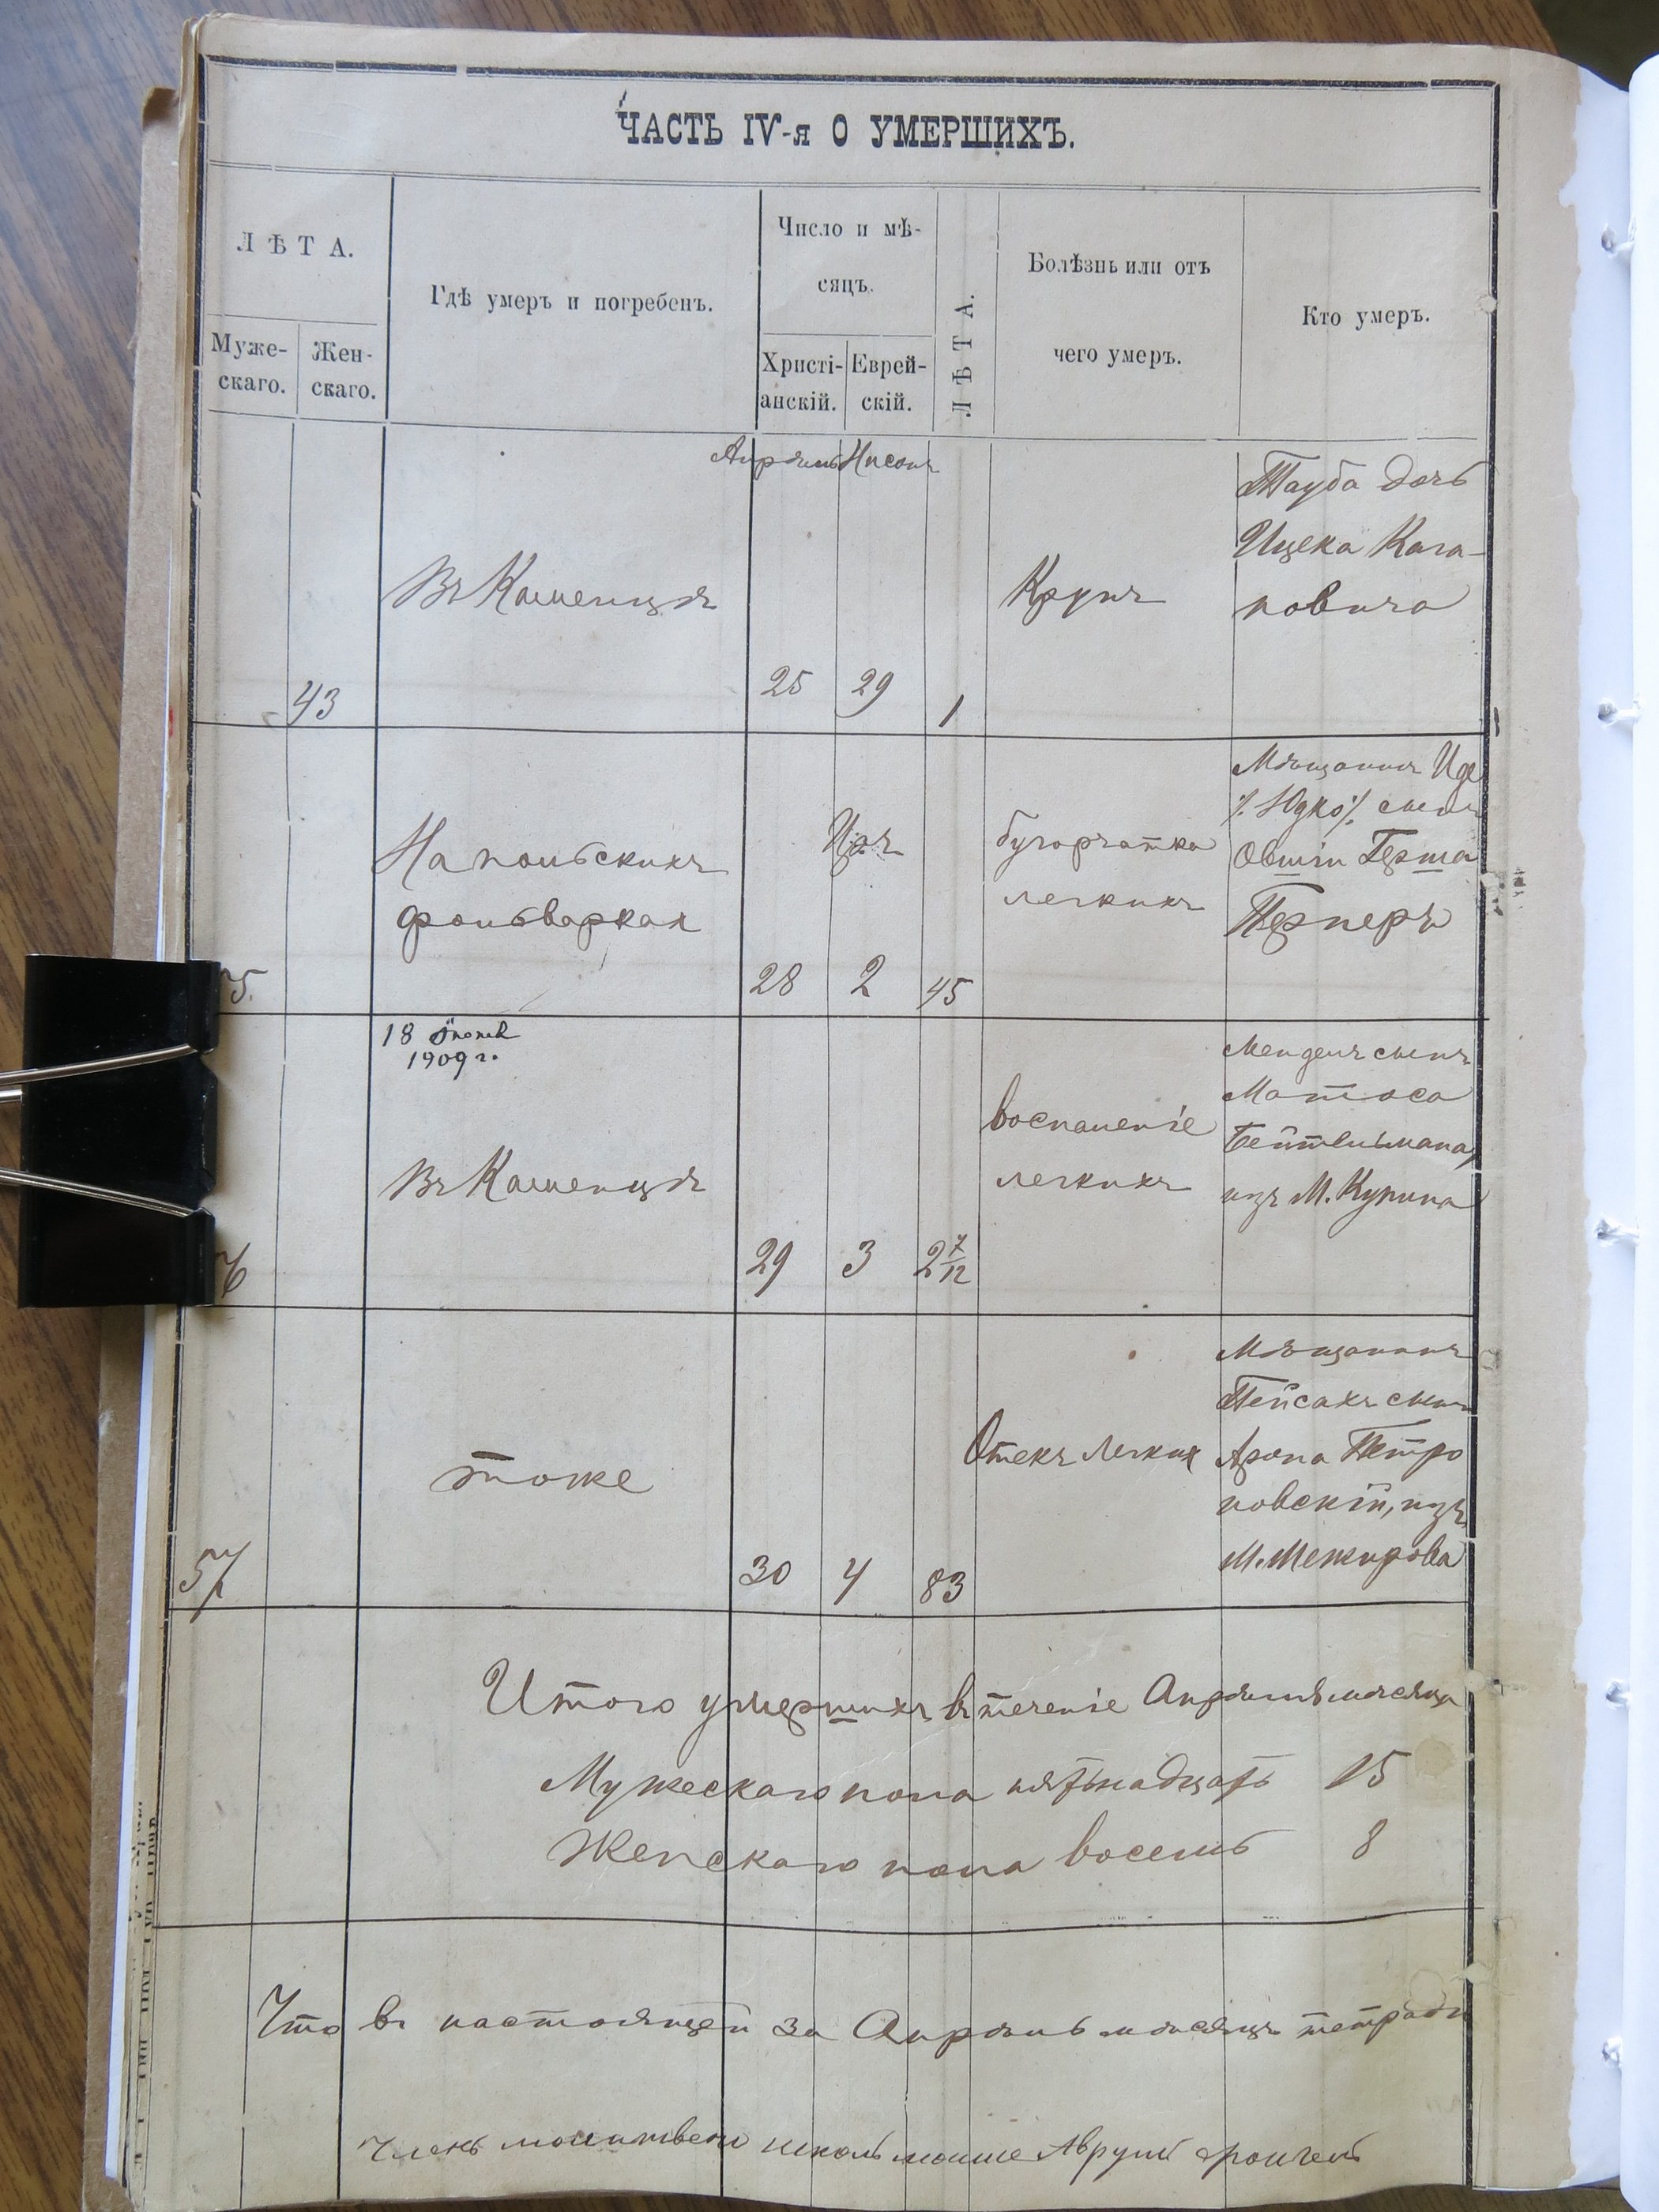 ЧАСТЬ IV-я О УМЕРШИХЪ.
ЛѢТА.
Муже-
скаго.
Жен-
скаго.
Гдѣ умеръ и погребенъ.
Число и мѣ-
сяцъ.
Христі-
анскій.
Еврей-
скій.
ЛѢТА.
Болѣзнь или отъ
чего умеръ.
Кто умеръ.
Апрѣль Нисонъ
43
Въ Каменцѣ
25 29 1
Крупъ
Тауба дочь
Ицека Кага-
новича
5.
На польскихъ
фольварках
Иръ
28 2 45
бугорчатка
легкихъ
Мѣщанинъ Иде
./. Юдко ./. сынъ
Овшіи Герша
Перперъ
6
18
1909 г.
Въ Каменцѣ
29 3 2 7/12
воспаленіе
легкихъ
Мендель сынъ
Матоса
Бейтельмана
изъ М. Купина
57
тоже
30 4 83
Отекъ легких
Мѣщанинъ
Пейсахъ сынъ
Арона Петро
новскій, изъ
М. Межирова
Итого умершихъ въ теченіе Апрѣля мѣсяца
Мужескаго пола пятьнадцать 15
Женскаго пола восемь 8
Что въ настоящей за Апрѣль мѣсяцъ тетради
Членъ школы мошко Аврумъ